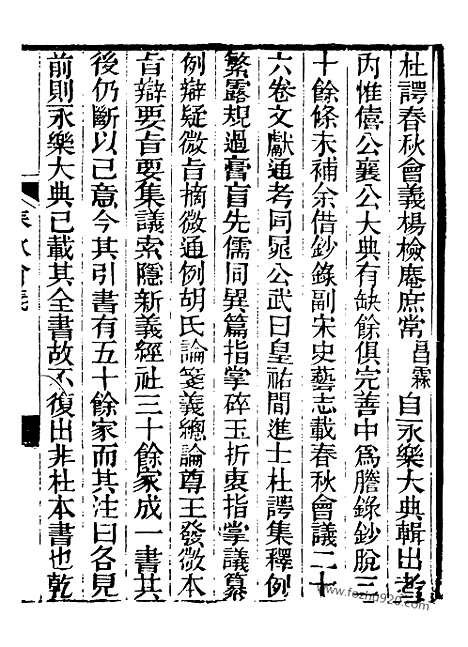 杜諤春秋會義楊檢庵庶常昌霖自永樂大典輯出
內惟僖公襄公大典有缺餘俱完善中為謄錄鈔脫三
十餘條未補余借鈔錄副宋史藝志載春秋會議二十
六卷文獻通考同晁公武曰皇祐間進士杜諤集釋例
繁露規過膏肓先儒同異篇指掌碎玉折衷指掌議纂
例辯疑微旨摘微通例胡氏論箋義總論尊王發微本
旨辯要旨要集議索隱新義經社三十餘家成一書其
後仍斷以己意今其引書有五十餘家而其注曰各見
前則永樂大典已載其全書故不復出非杜本書也乾
春秋會義
www.fozhu920.com